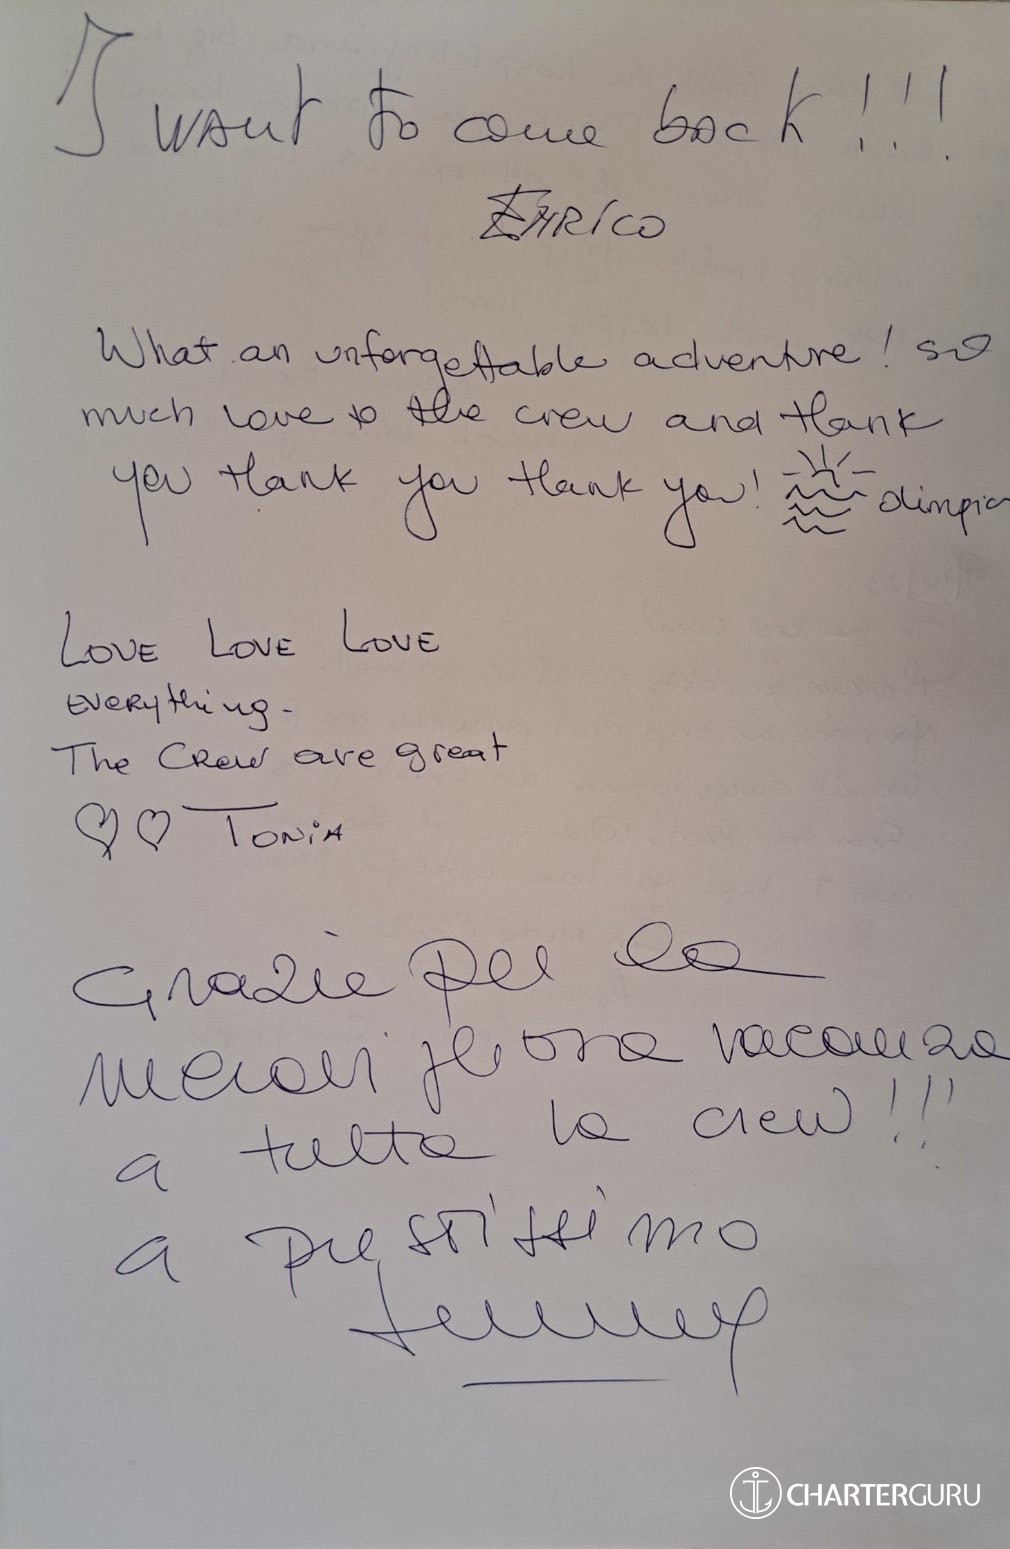 I want to come back!!!
ENRICO
What an unforgettable adventure! so
much love to the crew and thank
you thank you thank you! Olimpia
LOVE LOVE LOVE
everything-
The Crew are great
TONIA
Grazie per la
meravigliosa vacanza
a tutta la crew!!!
a prestissimo
CHARTERGURU